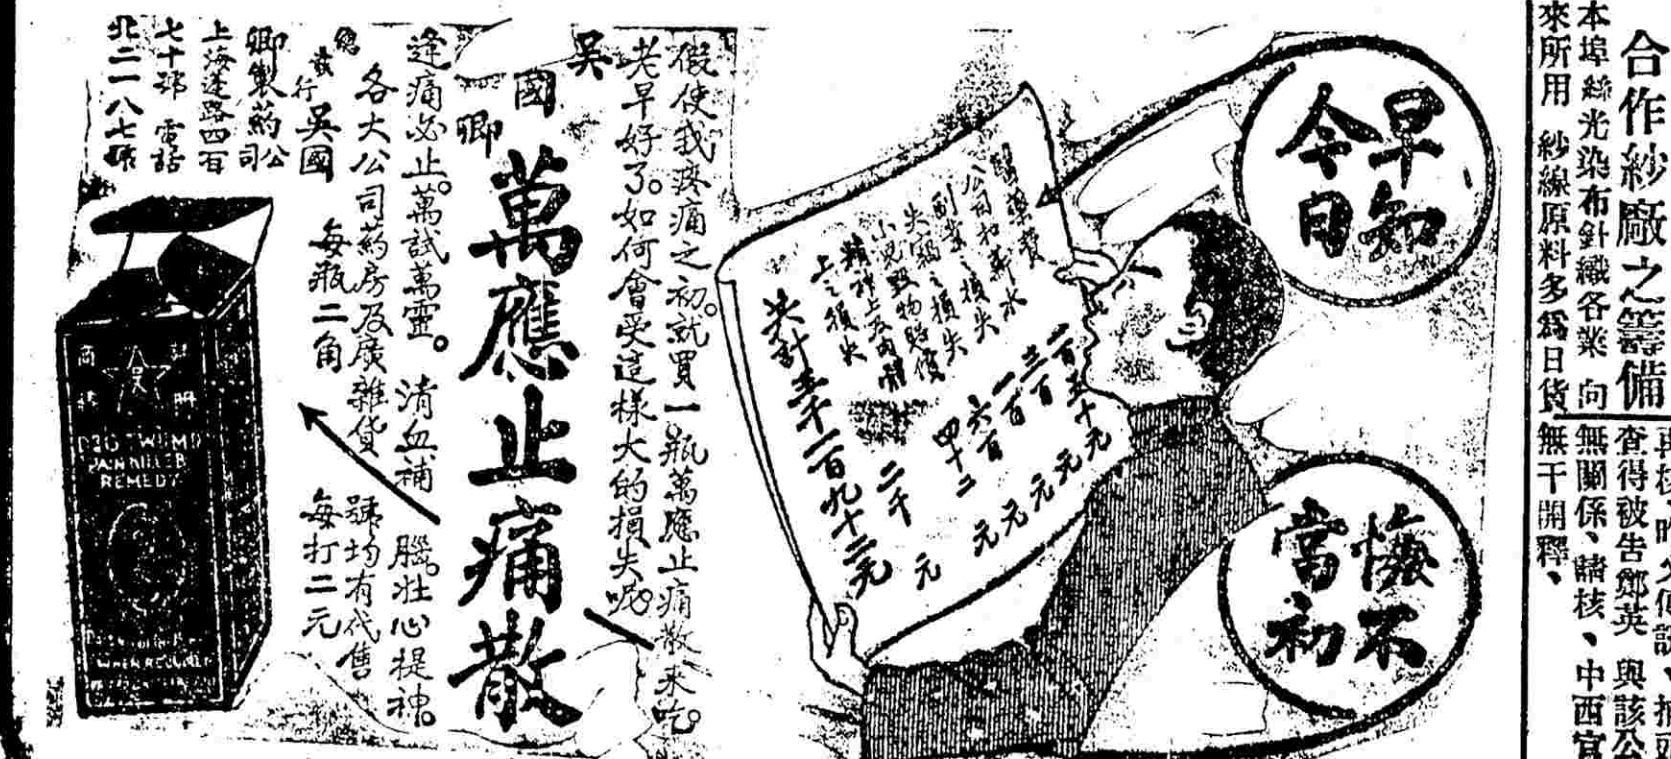 合作紗廠之籌備
本埠絲光染布針織各業 向
來所用 紗線原料多爲日貨
查得被告鄭英 與該公
無關係、請核、中西官
無干開釋、
早知
今日
悔不
當初
醫藥費 一百五十元
公司扣薪水 三百元
副業之損失 一百元
失竊之損失 六百元
小兒毀物賠償 四十二元
精神上及肉體
上之損失 二千元
共計三千一百九十二元
假使我疼痛之初。就買一瓶萬應止痛散來吃。
老早好了。如何會受這樣大的損失呢。
吳國卿
萬應止痛散
逢痛必止。萬試萬靈。 清血補腦。壯心提神。
各大公司葯房及廣雜貨號均有代售
每瓶二角 每打二元
總發行 吳國
卿製葯公司
上海蓬路四百
七十號 電話
北二一八七號
註冊
商標
PAINKILLER
REMEDY